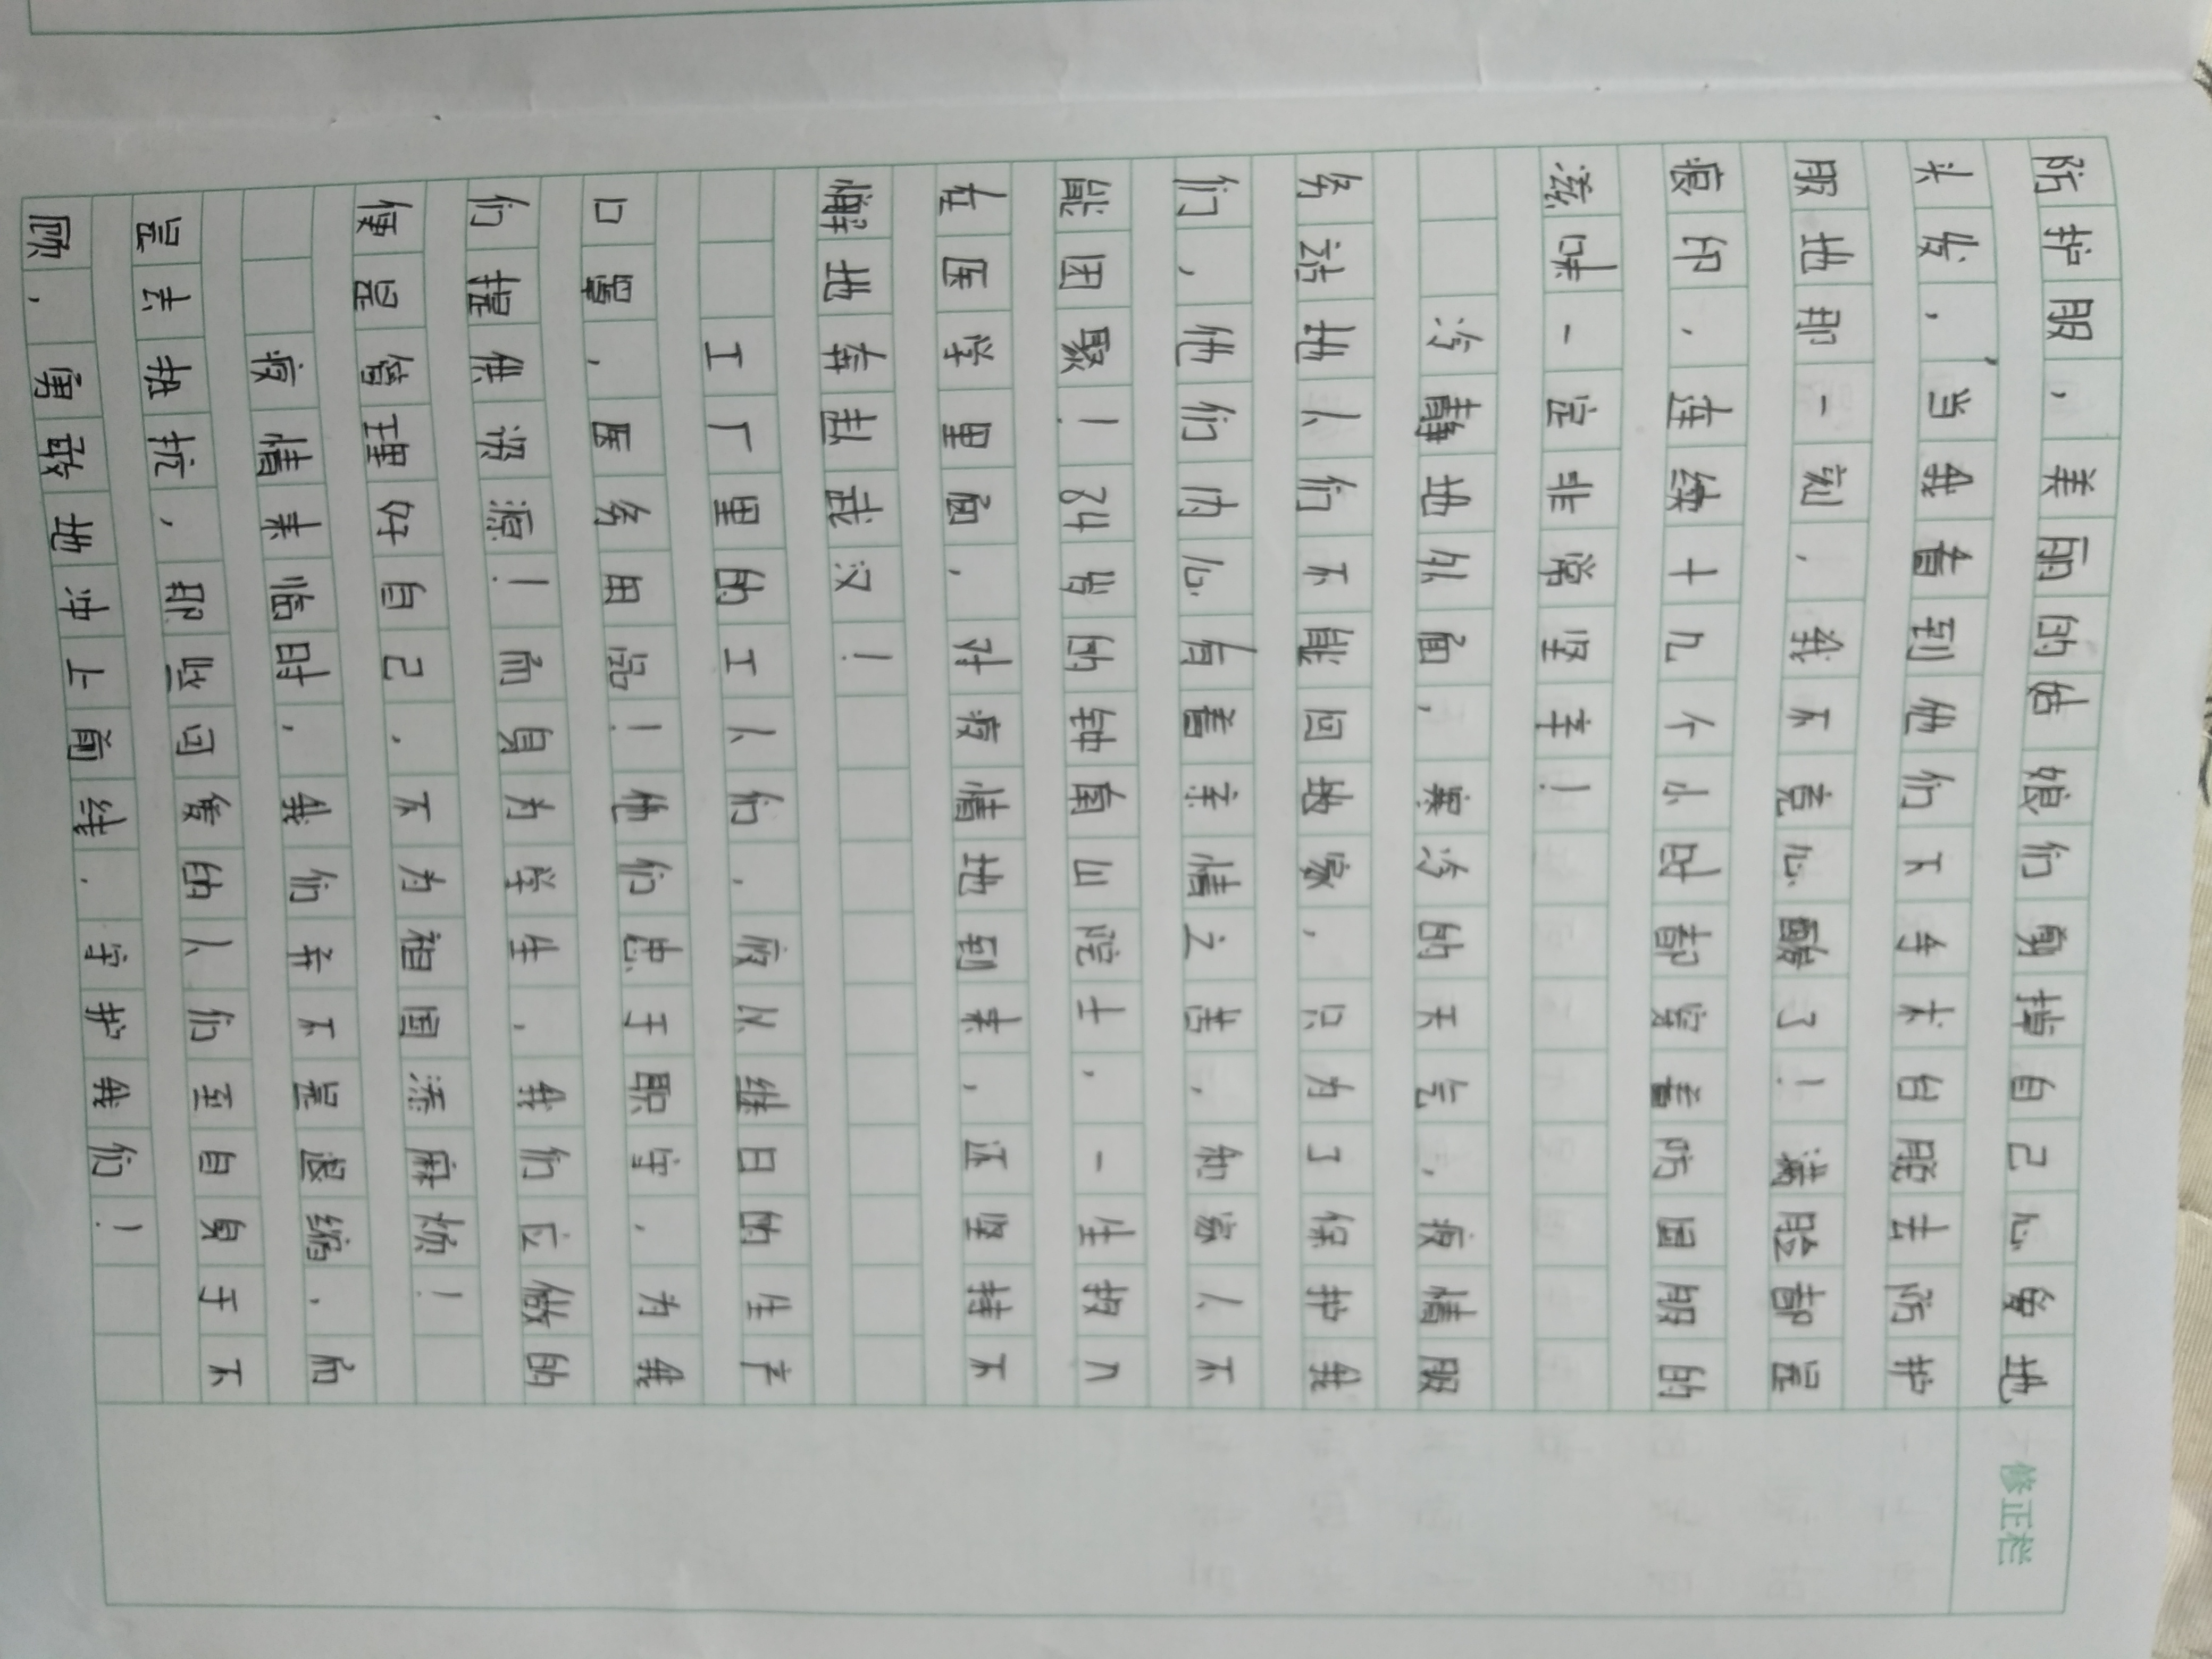 防护服，美丽的姑娘们剪掉自己心爱地
头发，当我看到他们不大白脱去防护
服地那一刻，我不竟心酸了！满脸都是
痕印，连续十几个小时都穿着防因服的
滋味一定非常坚辛！
冷静地外面，寒冷的天气，疫情服
务站地人们不能回故家，只为了保护我
们，他们内心有着亲情之苦，和家人不
能团聚！84岁的钟南山院士，一生投入
在医学里面，对疫情地到来，还坚持不
懈地奔赴武汉！
工厂里的工人们，夜以继日的生产
口罩，医务用品！他们忠于职守，为我
们提供资源！而身为学生，我们应做的
便是管理好自己，不为祖国添麻烦！
疫情来临时，我们并不是退缩，而
是去抵抗，那些可爱的人们至自身于不
顾，勇敢地冲上前线，守护我们！
修正栏